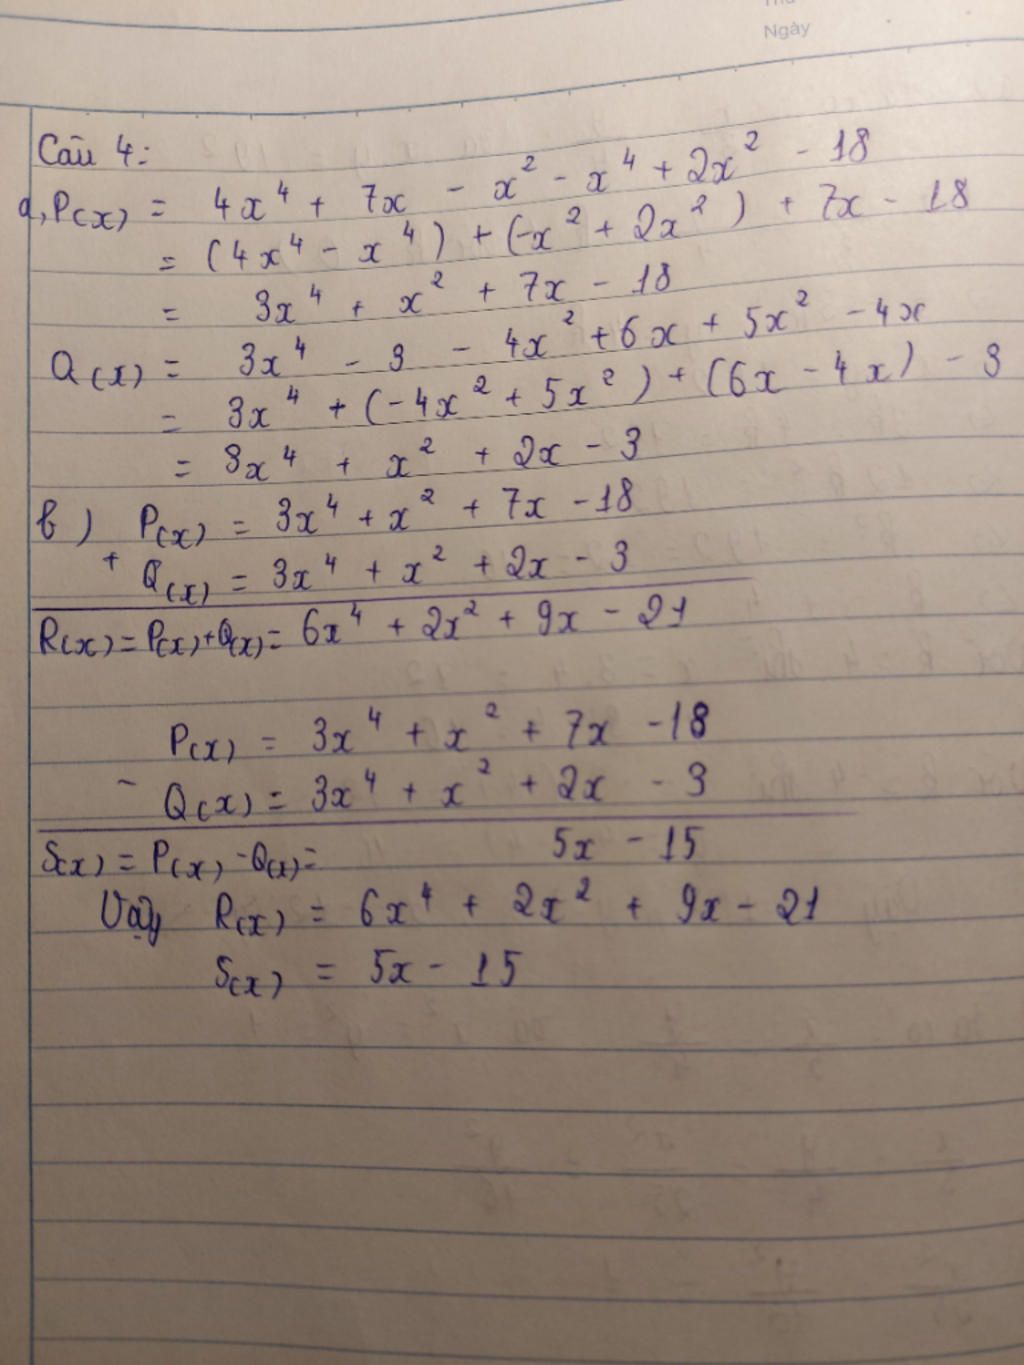 Ngày
Câu 4:
a, P(x) = 4x⁴ + 7x - x² - x⁴ + 2x² - 18
= (4x⁴ - x⁴) + (-x² + 2x²) + 7x - 18
= 3x⁴ + x² + 7x - 18
Q(x) = 3x⁴ - 3 - 4x² + 6x + 5x² - 4x
= 3x⁴ + (-4x² + 5x²) + (6x - 4x) - 3
= 3x⁴ + x² + 2x - 3
b) P(x) = 3x⁴ + x² + 7x - 18
+ Q(x) = 3x⁴ + x² + 2x - 3
R(x) = P(x) + Q(x) = 6x⁴ + 2x² + 9x - 21
P(x) = 3x⁴ + x² + 7x - 18
- Q(x) = 3x⁴ + x² + 2x - 3
S(x) = P(x) - Q(x) = 5x - 15
Vậy R(x) = 6x⁴ + 2x² + 9x - 21
S(x) = 5x - 15